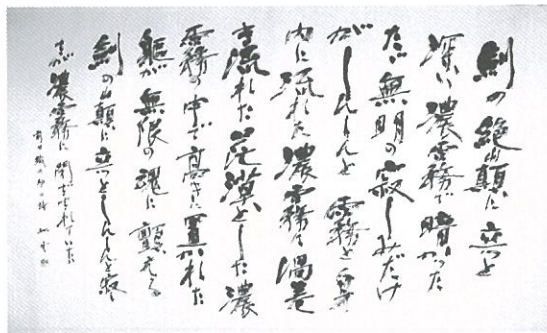 剣の絶山顛に立つと
深い濃雲霧で暗かった
ただ無明の寂しみだけ
がしんしんと雲霧と身
内に流れた濃雲霧は渦巻
き流れた茫漠とした濃
雲霧の中で高さに置かれた
軀が無限の魂に顫える
剣の山顛に立つとしんしんと寂
きが濃雲霧に閉ざされていた